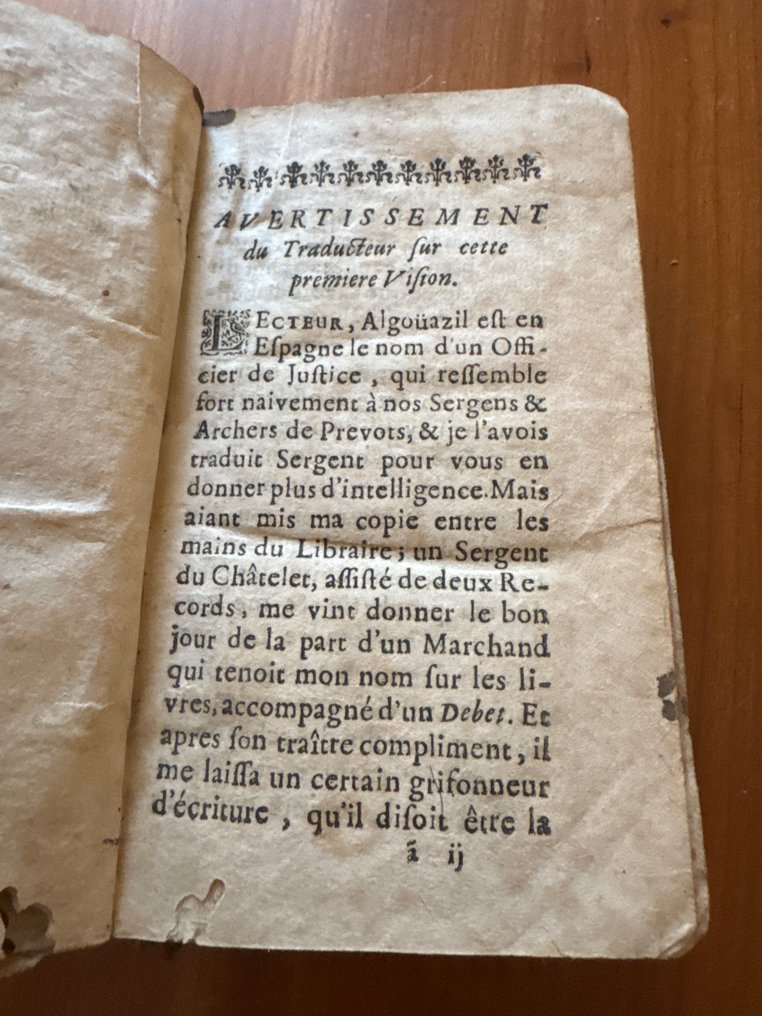 AVERTISSEMENT
du Traducteur ſur cette
premiere Viſion.
LECTEUR, Algoüazil eſt en
Eſpagne le nom d'un Offi-
cier de Juſtice, qui reſſemble
fort naivement à nos Sergens &
Archers de Prevots, & je l'avois
traduit Sergent pour vous en
donner plus d'intelligence. Mais
aiant mis ma copie entre les
mains du Libraire; un Sergent
du Châtelet, aſſiſté de deux Re-
cords, me vint donner le bon
jour de la part d'un Marchand
qui tenoit mon nom ſur les li-
vres, accompagné d'un Debet. Et
apres ſon traître compliment, il
me laiſſa un certain grifonneur
d'écriture, qu'il diſoit être la
ã ij